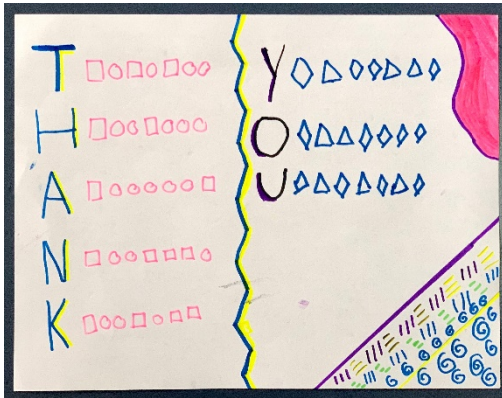 T
H
A
N
K
Y
O
U